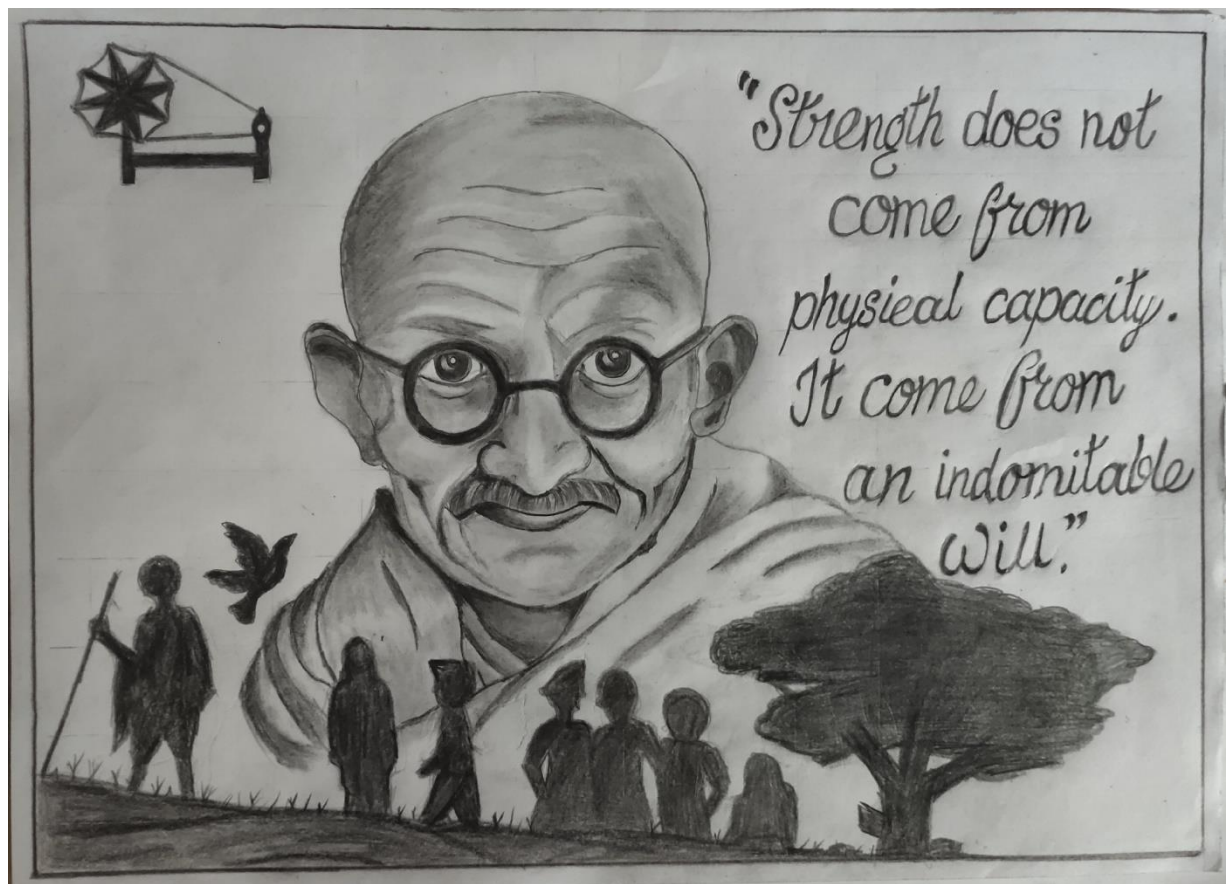 "Strength does not
come from
physical capacity.
It come from
an indomitable
will."